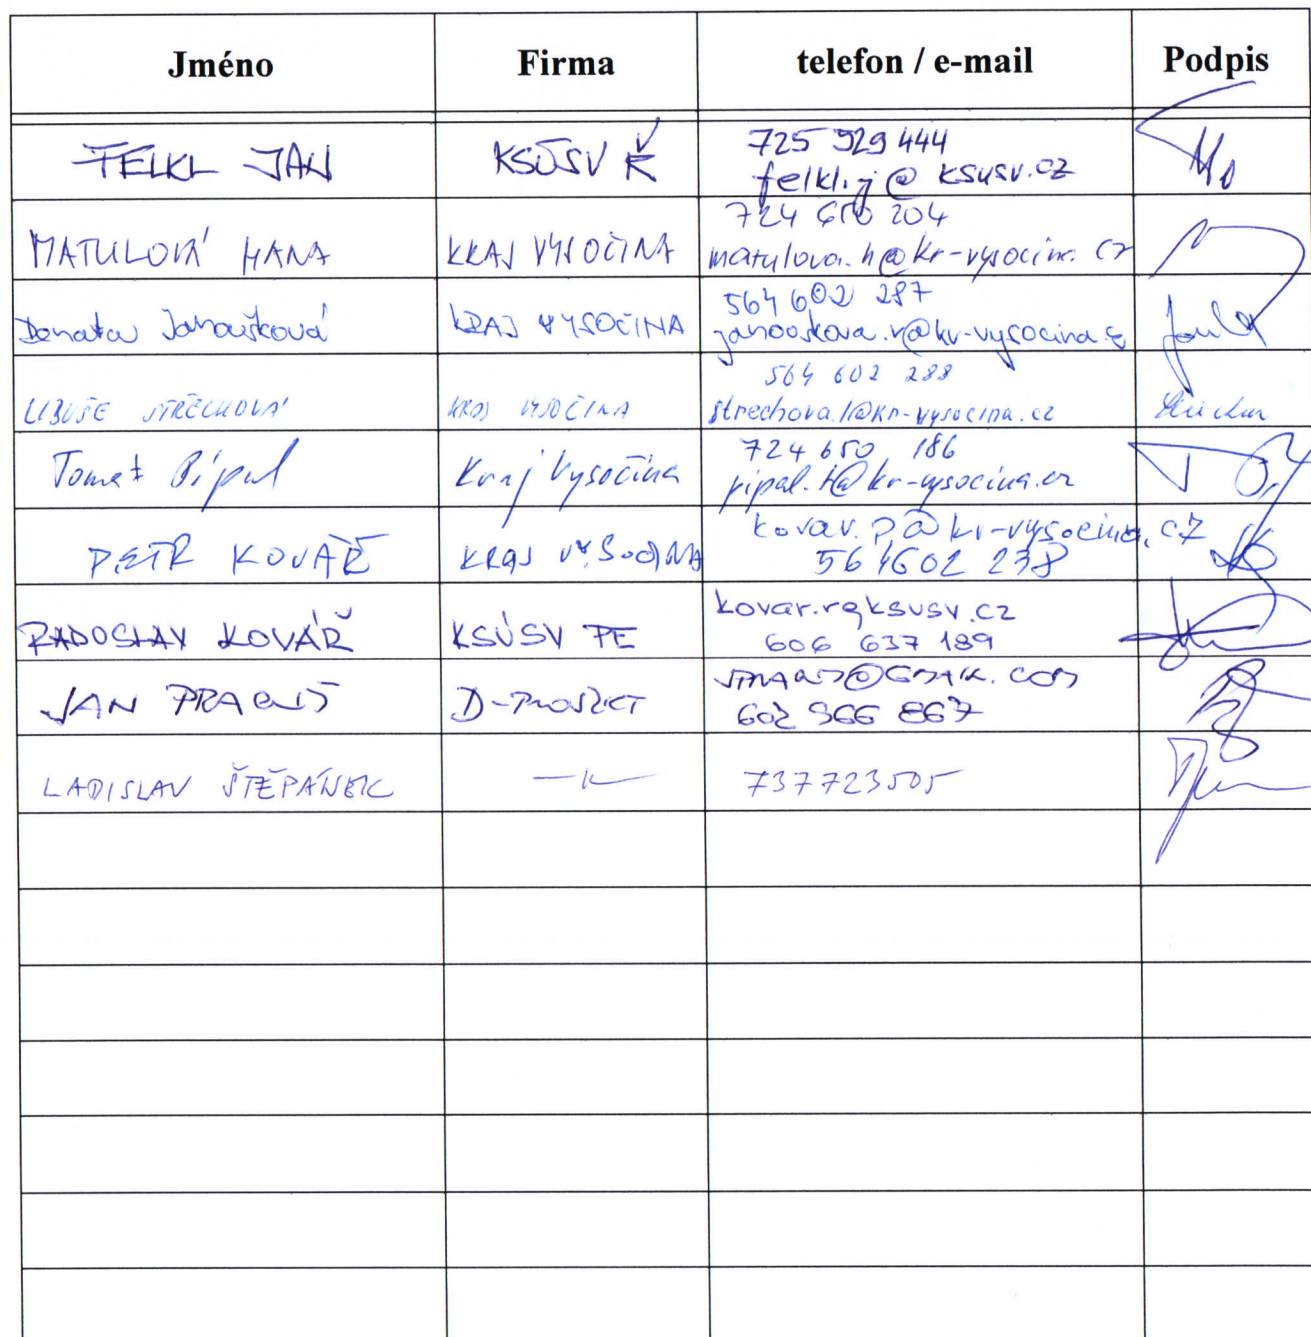 Jméno Firma telefon / e-mail Podpis
FELKL JAN KSÚSV 725 929 444
felkl.j@ksusv.cz
MATULOVÁ HANA KRAJ VYSOČINA 724 650 204
matulova.h@kr-vysocina.cz
Janoušková KRAJ VYSOČINA 564 602 287
janouskova.r@kr-vysocina.cz
LIBUŠE STŘECHOVÁ KRAJ VYSOČINA 564 602 288
strechova.l@kr-vysocina.cz
Tomáš Kraj Vysočina 724 650 186
pipal.t@kr-vysocina.cz
PETR KOVÁŘ KRAJ VYSOČINA kovar.p@kr-vysocina.cz
564602 238
RADOSLAV KOVÁŘ KSÚSV PE kovar.r@ksusv.cz
606 637 189
JAN D-PROJEKT
602 966 867
LADISLAV ŠTĚPÁNEK 737723505